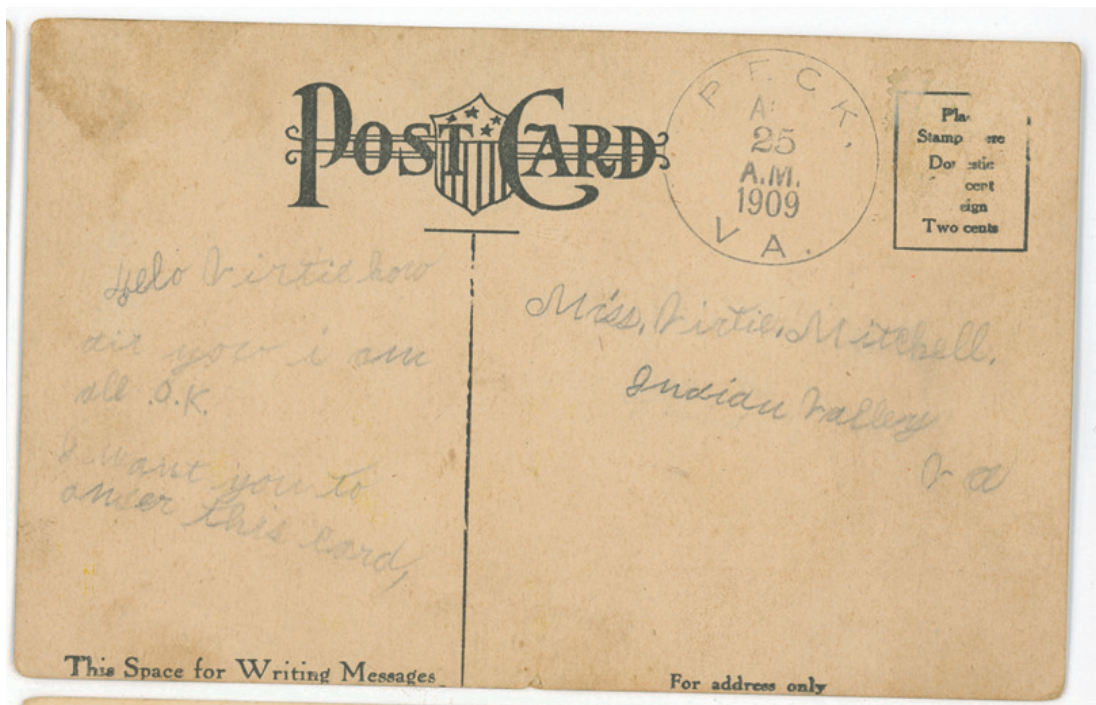 POST CARD
PECK,
25
A.M.
1909
VA.
Stamp
Two cents
Helo Virtie how
air you i am
all .O.K.
I want you to
anser this card,
Miss, Virtie, Mitchell,
Indian Valley
Va
This Space for Writing Messages
For address only